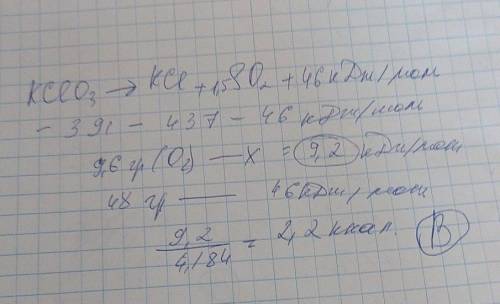 KClO₃ → KCl + 1,5O₂ + 46 кДж/мол
- 391 - 437 - 46 кДж/мол
9,6 гр (O₂) — x = 9,2 кДж/мол
48 гр — 46 кДж/мол
9,2 / 4,184 = 2,2 ккал. В